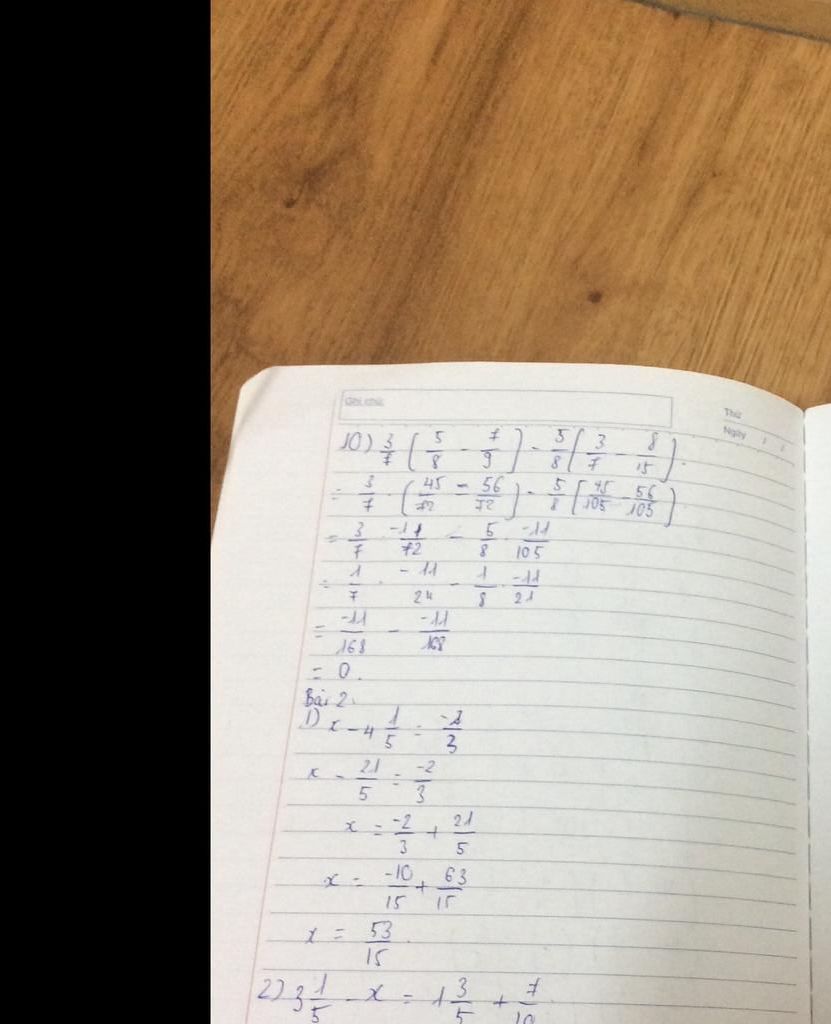 Ghi chú:
Thứ
Ngày / /
10) 3/7 ( 5/8 - 7/9 ) - 5/8 ( 3/7 - 8/15 ).
= 3/7 . ( 45/72 - 56/72 ) - 5/8 ( 45/105 - 56/105 )
= 3/7 . -11/72 - 5/8 . -11/105
= 1/7 . -11/24 - 1/8 . -11/21
= -11/168 - -11/168
= 0.
Bài 2.
1) x - 4 1/5 = -2/3
x - 21/5 = -2/3
x = -2/3 + 21/5
x = -10/15 + 63/15
x = 53/15
2) 3 1/5 - x = 1 3/5 + 7/10